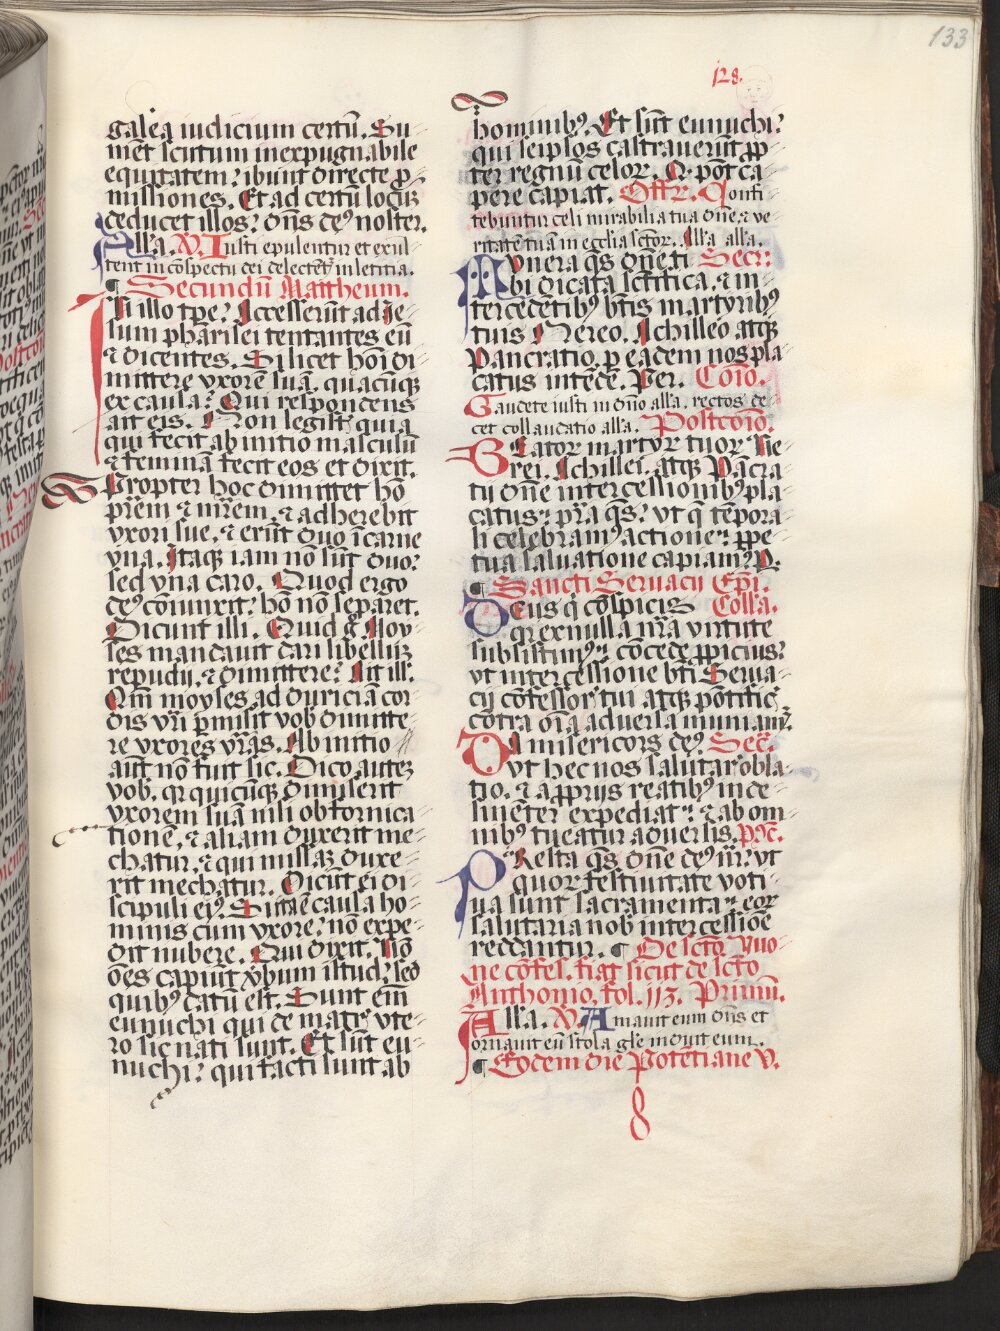 133
128.
galea iudicium certū. Su
met scutum inexpugnabile
equitatem: ibunt directe p̄
missiones. Et ad certū locuȝ
deducet illos: dn̄s deꝰ noster.
Alla. V. Iusti epulentur et exul
tent in cōspectu dei delectēt᷑ in leticia.
¶ Secundū Mattheum.
In illo tp̄e: Accesserūt ad Ie
sum pharisei tentantes eū
⁊ dicentes. Si licet hoī di
mittere vxorē suā. quacūqȝ
ex causa: Qui respondens
ait eis. Non legist᷑ quia
qui fecit ab initio masculū
⁊ feminā fecit eos et dixit.
Propter hoc dimittet hō
pr̄em ⁊ mr̄em, ⁊ adherebit
vxori sue, ⁊ erūt duo ī carne
vna. Itaqȝ iam nō sūt duo:
sed vna caro. Quod ergo
deꝰ cōiunxit: hō nō separet.
Dicunt illi. Quid g̊ Moy
ses mandauit dari libelluȝ
repudij, ⁊ dimittere: Ait ill᷑.
Qm̄ moyses ad duriciā cor
dis vr̄i p̄misit vob dimitte
re vxores vr̄as. Ab initio
aūt nō fuit sic. Dico auteȝ
vob. qꝛ quicūqȝ dimiserit
vxorem suā nisi ob fornica
tionē, ⁊ aliam duxerit me
chatur, ⁊ qui missaȝ duxe
rit mechatur. Dicūt ei di
scipuli eiꝰ. Si ita ē causa ho
minis cum vxore: nō expe
dit nubere. Qui dixit. Nō
oēs capiūt v̄bum istud: sed
quibꝰ datū est. Sunt em̄
eunuchi qui de matr᷑ vte
ro sic nati sunt. Et sūt eu
nuchi: qui facti sunt ab
hominibꝰ. Et sūt eunuchi:
qui seipsos castrauerūt ꝓp
ter regnū celoꝝ. Q̇ pōt ca
pere capiat. Offr. Confi
tebuntur celi mirabilia tua dn̄e, ⁊ ve
ritatē tuā in ecclīa sctōꝝ. Alla alla.
Munera qs̄ dn̄e ti Secr:
bi dicata sctīfica, ⁊ in
tercedētibꝰ btīs martyribꝰ
tuis Nereo. Achilleo atqȝ
Pancratio. p eadem nos pla
catus intēde. Per. Cōio.
Gaudete iusti in dn̄o alla. rectos de
cet collaudatio alla. Postcōio.
Beatoꝝ martyꝝ tuoꝝ Ne
rei. Achillei. atqȝ Pācra
tij dn̄e intercessionibꝰ pla
catus: pr̄a qs̄: vt q̄ tēpora
li celebramꝰ actione: ꝑpe
tua saluatione capiamꝰ. P.
¶ Sancti Seruacii Ep̄i.
Deus q̇ cōspicis Coll̄a.
qꝛ ex nulla nr̄a virtute
subsistimꝰ: cōcede ꝓpicius:
vt intercessione btī Serua
cij cōfessor᷑ tui atqȝ pōtific᷑
cōtra oīa aduersa muniam᷑.
Da misericors deꝰ Sec̄.
vt hec nos salutar᷑ obla
tio. ⁊ a ꝓprijs reatibꝰ inde
sinēter expediat: ⁊ ab om
nibꝰ tueatur aduersis. poc̄.
Presta qs̄ dn̄e deꝰ nr̄: vt
quoꝝ festiuitate voti
ua sunt sacramenta: eoꝝ
salutaria nob intercessiōe
reddantur. ¶ De sctō Yuo
ne cōfes. fiat sicut de sctō
Anthonio. fol. 113. Primū.
Alla. V. Amauit eum dn̄s et
ornauit eū stola gle induit eum.
¶ Eodem die Potētiane V.
8